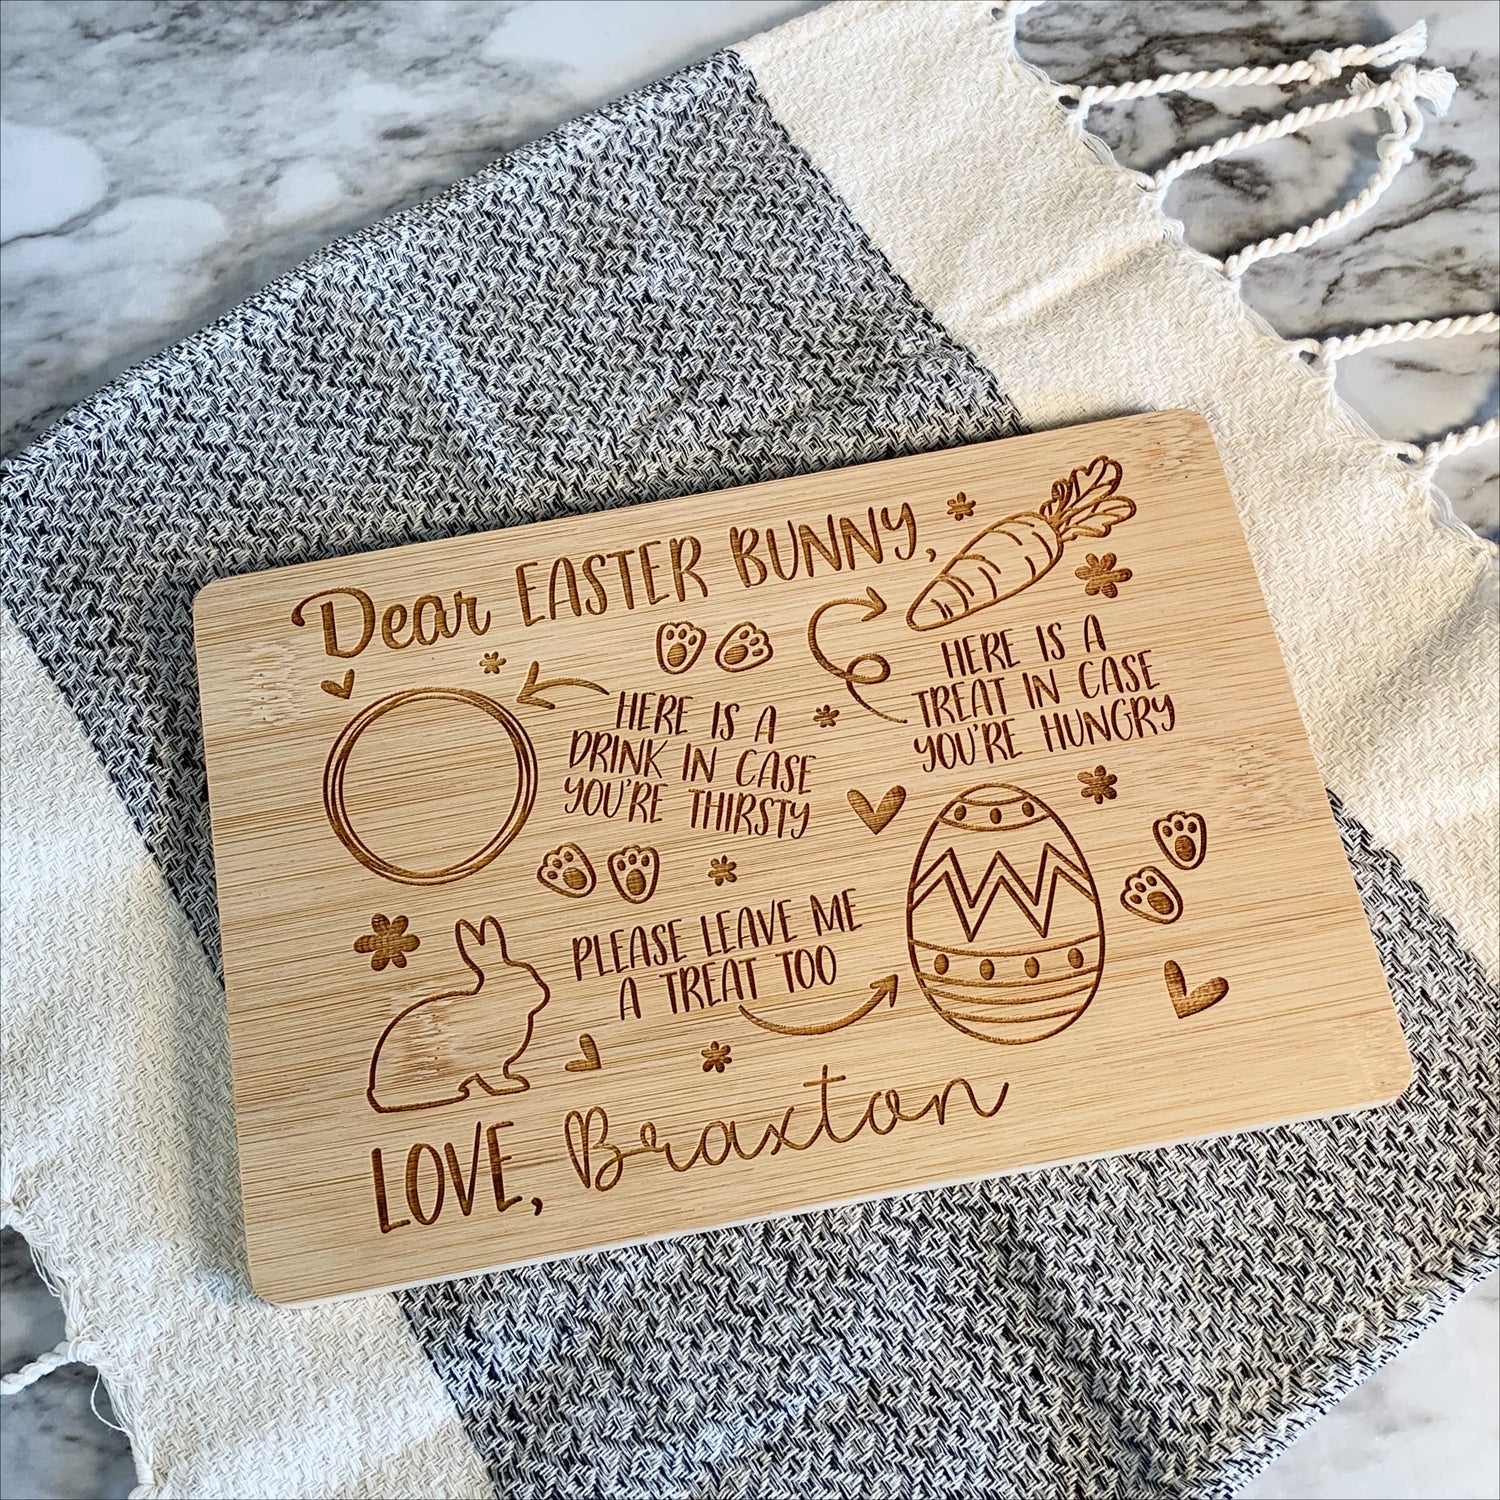 Dear EASTER BUNNY,
HERE IS A
DRINK IN CASE
YOU'RE THIRSTY
HERE IS A
TREAT IN CASE
YOU'RE HUNGRY
PLEASE LEAVE ME
A TREAT TOO
LOVE, Braxton